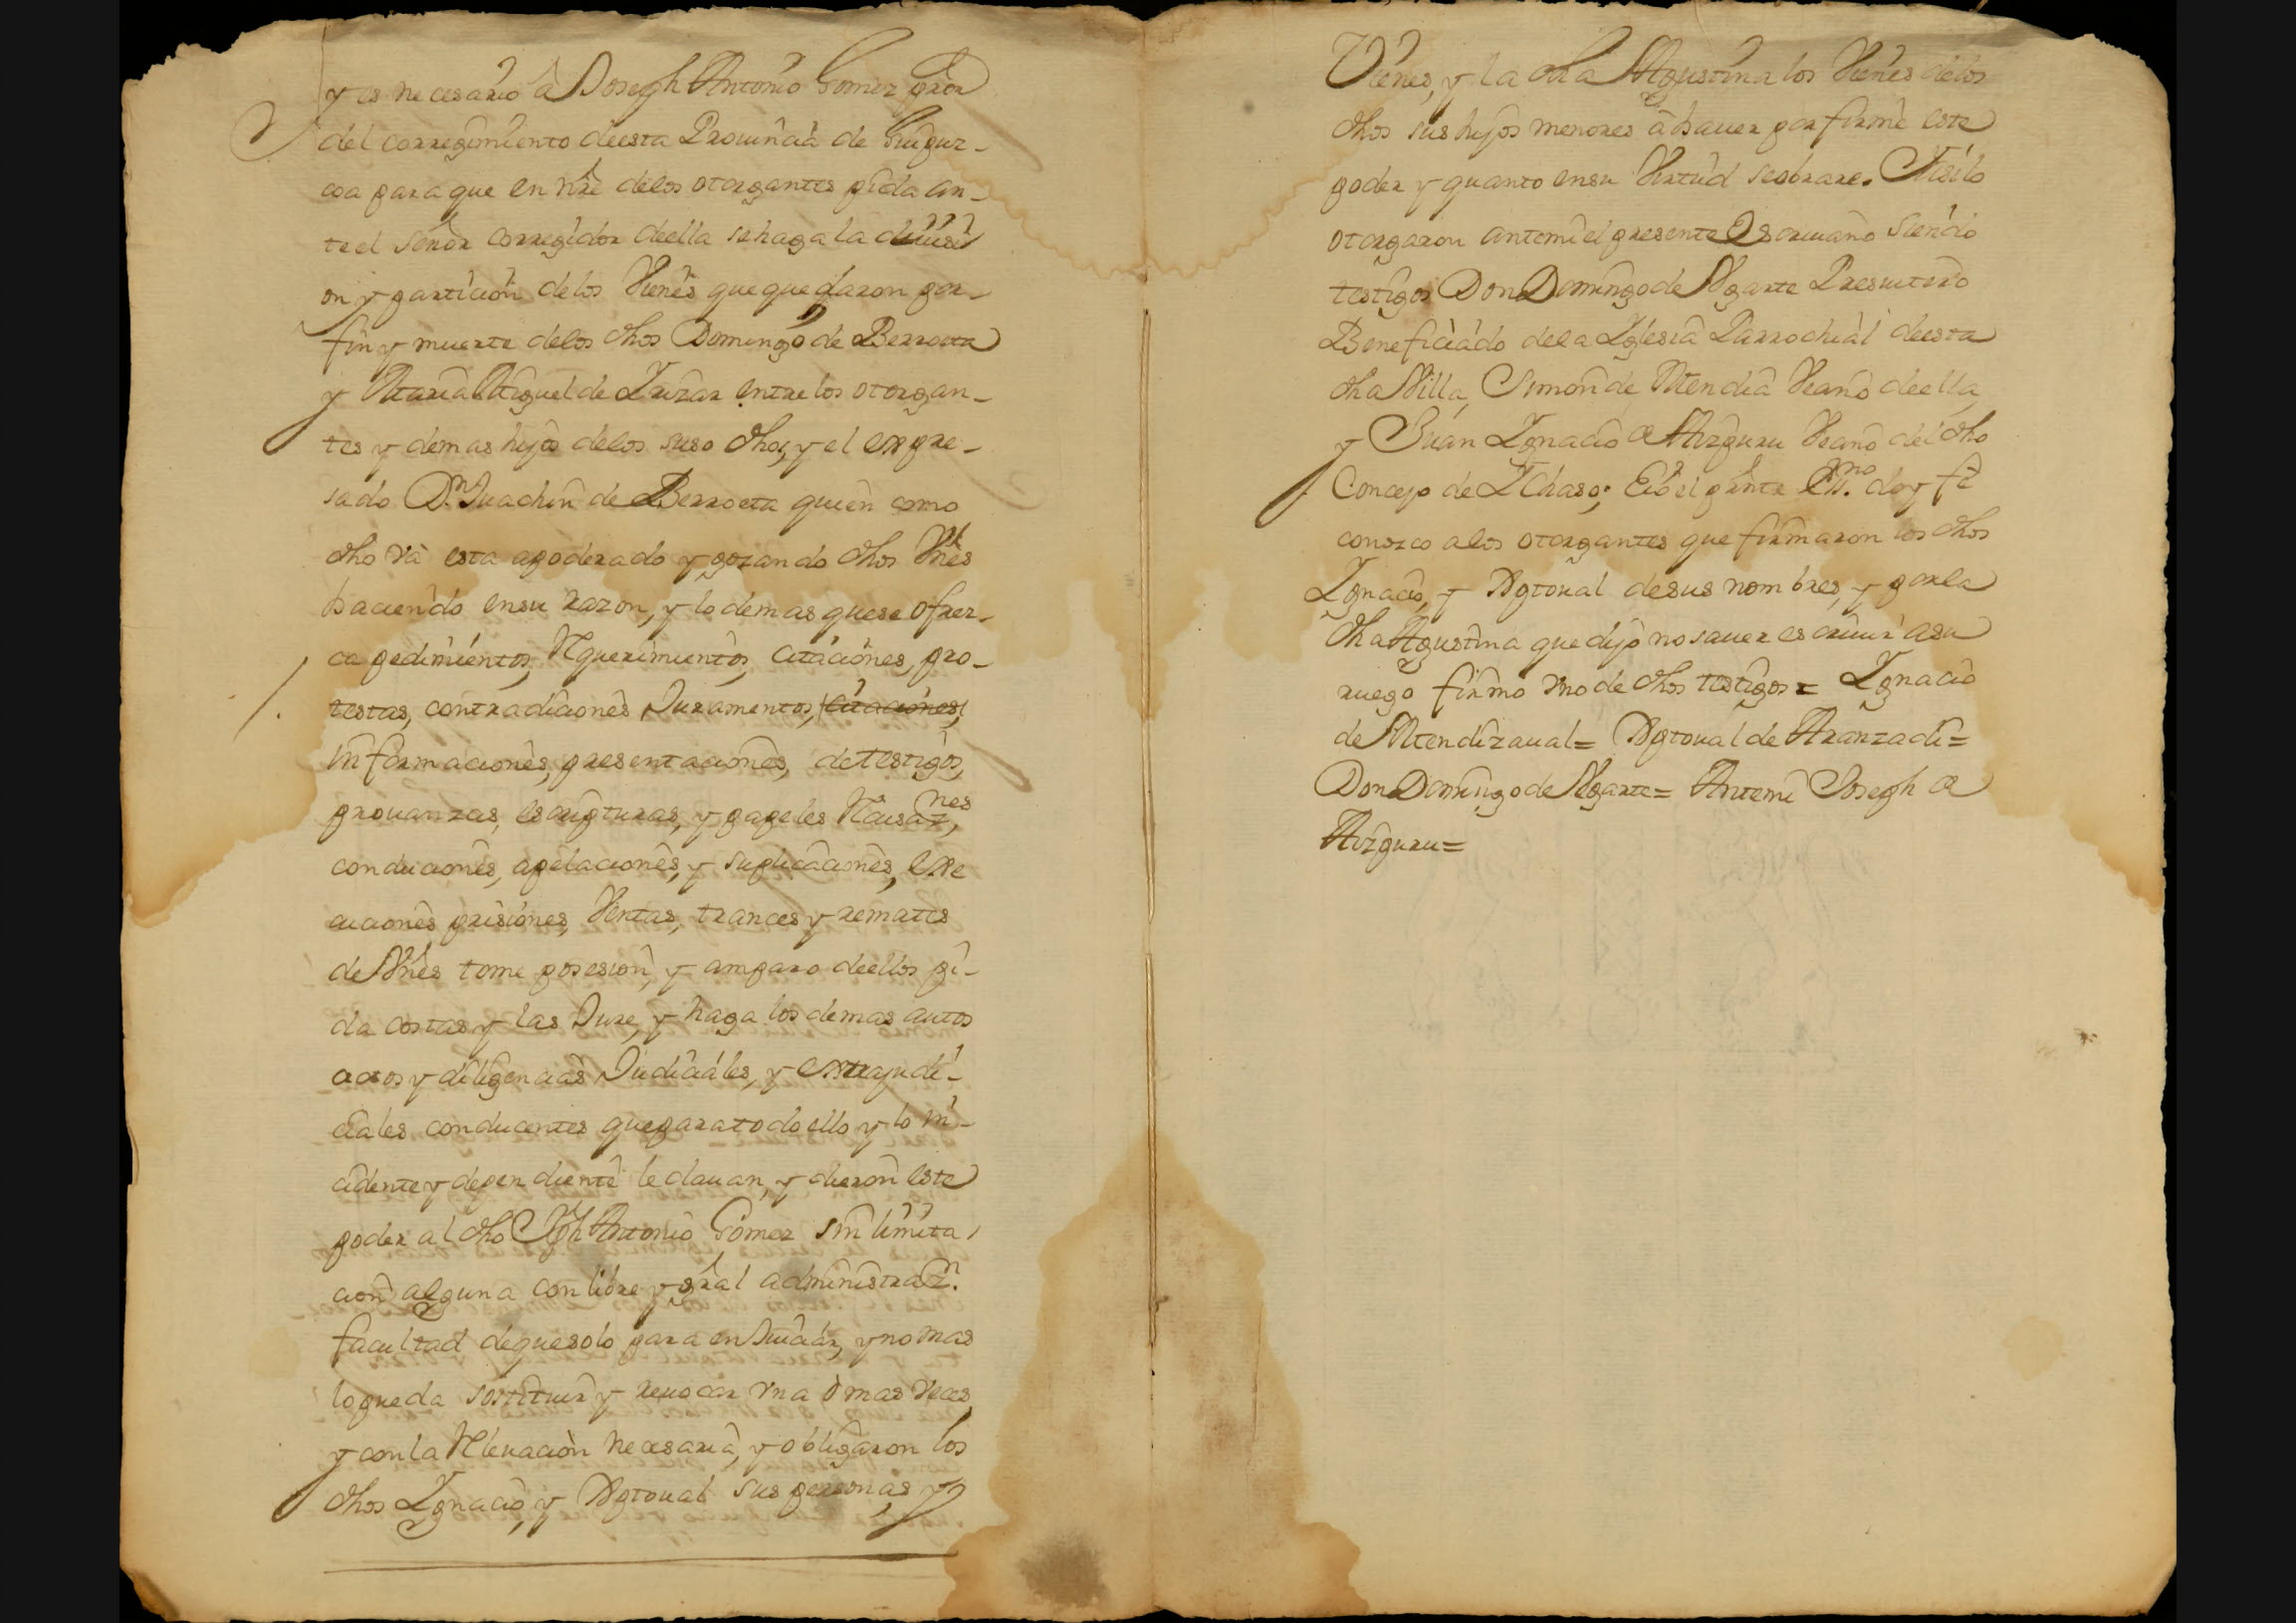 y es necesario â Joseph Antonio Gomez pror
del corregimiento deesta Prouincia de Guipuz-
coa para que en nre delos otorgantes pida an-
te el señor corregidor deella se haga la diuisi
on y particion delos Vienes que quedaron por
fin y muerte delos dhos Domingo de Berroeta
y Maria Miguel de Irizar entre los otorgan-
tes y demas hijos delos suso dhos, y el expre-
sado Dn. Juachin de Berroeta quien como
dho va esta apoderado y gozando dhos Vnes
haciendo ensu razon, y lo demas que se ofrez-
ca pedimientos, Requerimientos, citaciones, pro-
testas, contradiciones Juramentos, citaciones,
informaciones, presentaciones, de testigos,
prouanzas, escripturas, y papeles Recusaznes,
conduciones, apelaciones, y suplicaciones, exe
cuciones prisiones, Ventas, trances y remates
de Vnes tome posesion, y amparo deellos pi-
da costas y las Jure, y haga los demas autos
actos y diligencias Judiciales, y extrajudi-
ciales conducentes que para todo ello y lo in-
cidente y dependiente le dauan, y dieron este
poder al dho Jph Antonio Gomez sin limita
cion alguna con libre y gral administrazn.
facultad de que solo para enJuiciar, y no mas
lo pueda sostituir y reuocar vna ô mas veces
y con la Releuacion necesaria, y obligaron los
dhos Ignacio, y Xptoual sus personas y
Vienes, y la dha Agustina los Vienes delos
dhos sus hijos menores â hauer por firme este
poder y quanto ensu Virtud se obrare. Asilo
otorgaron antemi el presente Escriuano siendo
testigos Don Domingo de Vgarte Presuitero
Beneficiado dela Iglesia Parrochial deesta
dha Villa, Simon de Mendia Vecino deella,
y Juan Ignacio de Aizguru Vecino del dho
Concejo de Ichaso; E io el pnte Esno. doy fe
conozco alos otorgantes que firmaron los dhos
Ignacio, y Xptoual de sus nombres, y por la
dha Agustina que dijo no sauer escriuir asu
ruego firmo vno de dhos testigos = Ignacio
de Mendizaual = Xptoual de Aranzadi =
Don Domingo de Vgarte = Antemi Joseph de
Aizguru =